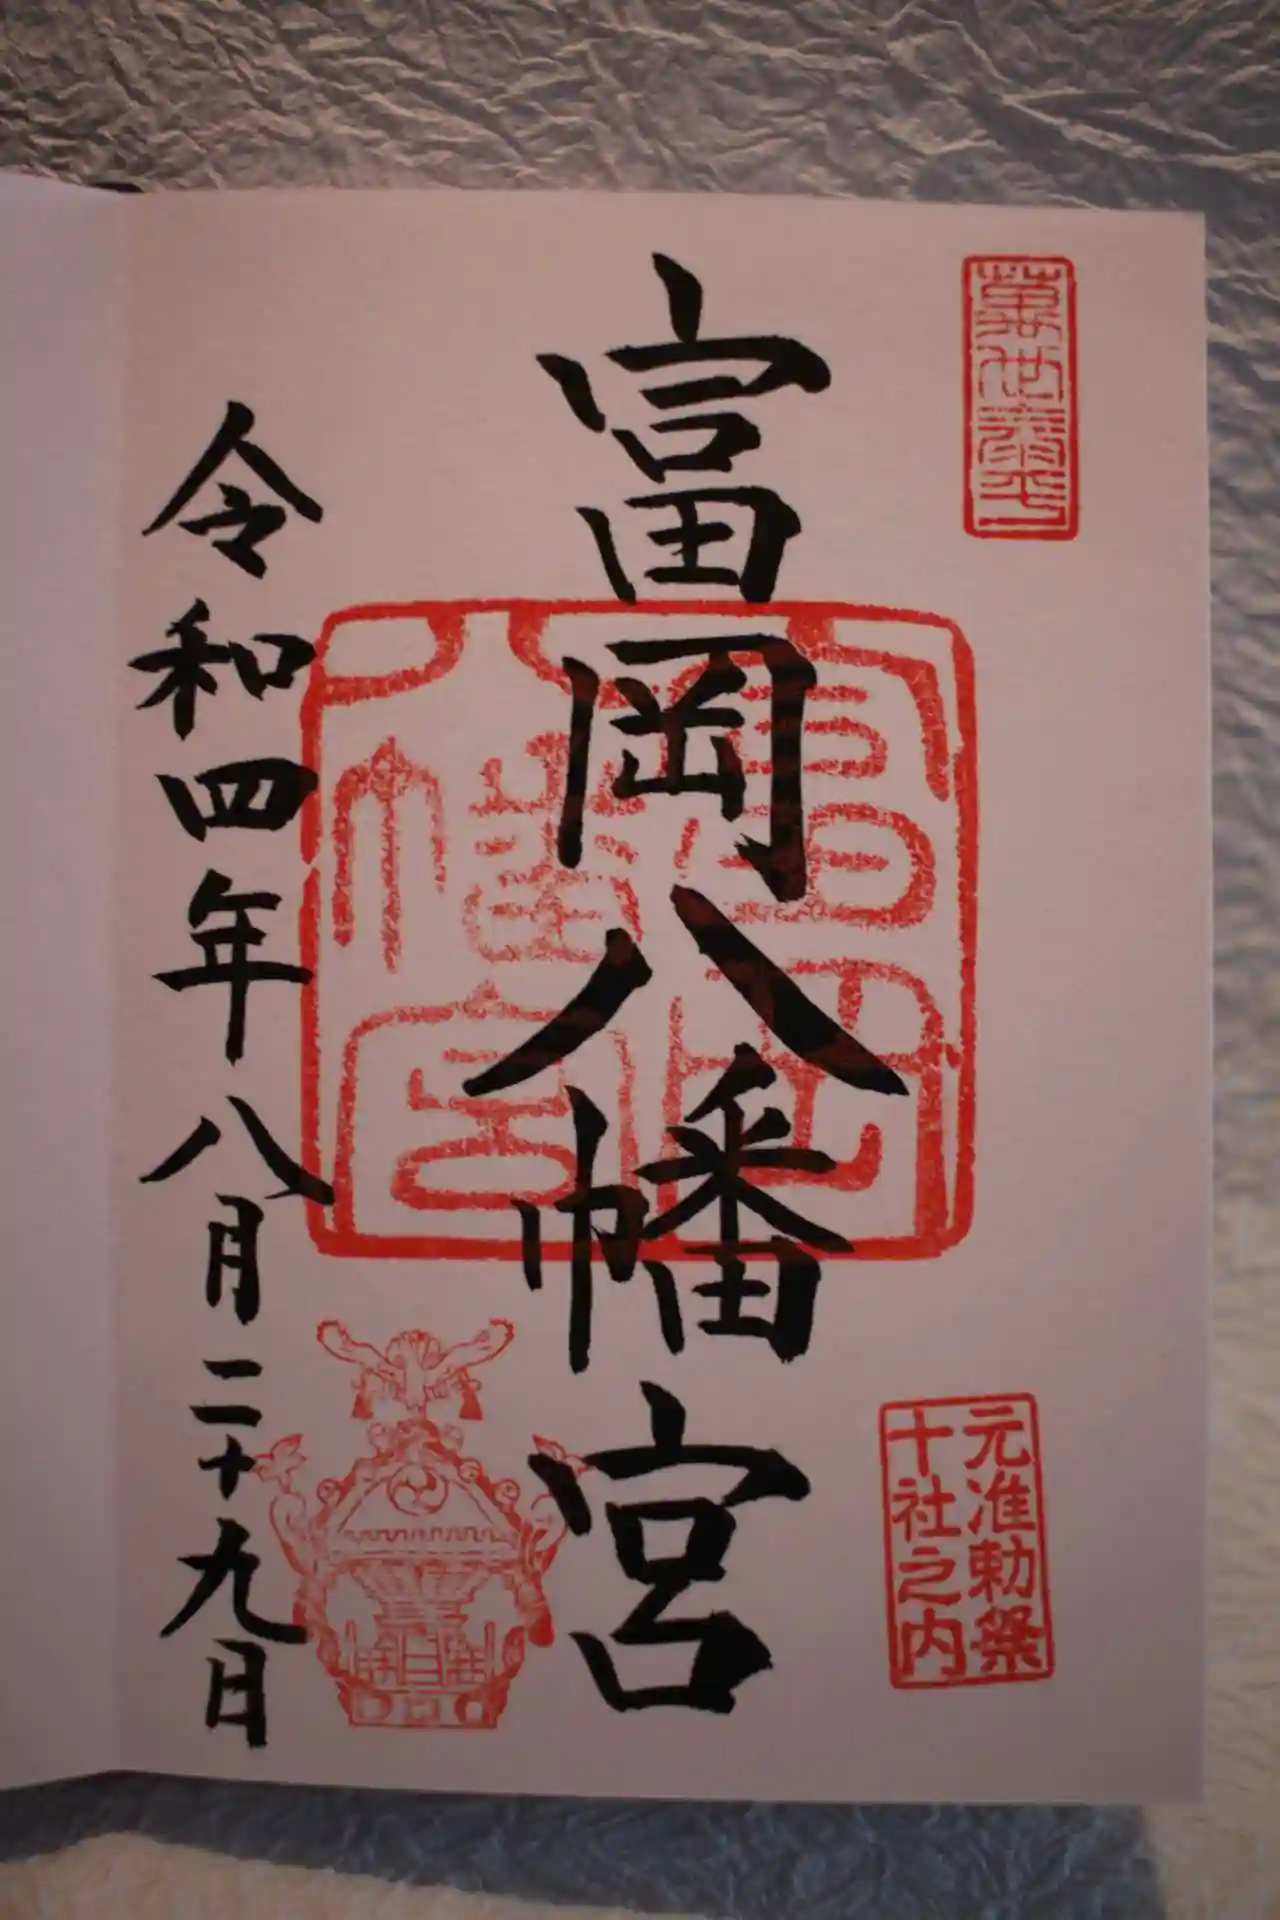 萬世泰平
元准勅祭
十社之内
富岡八幡宮
富岡八幡宮
令和四年八月二十九日